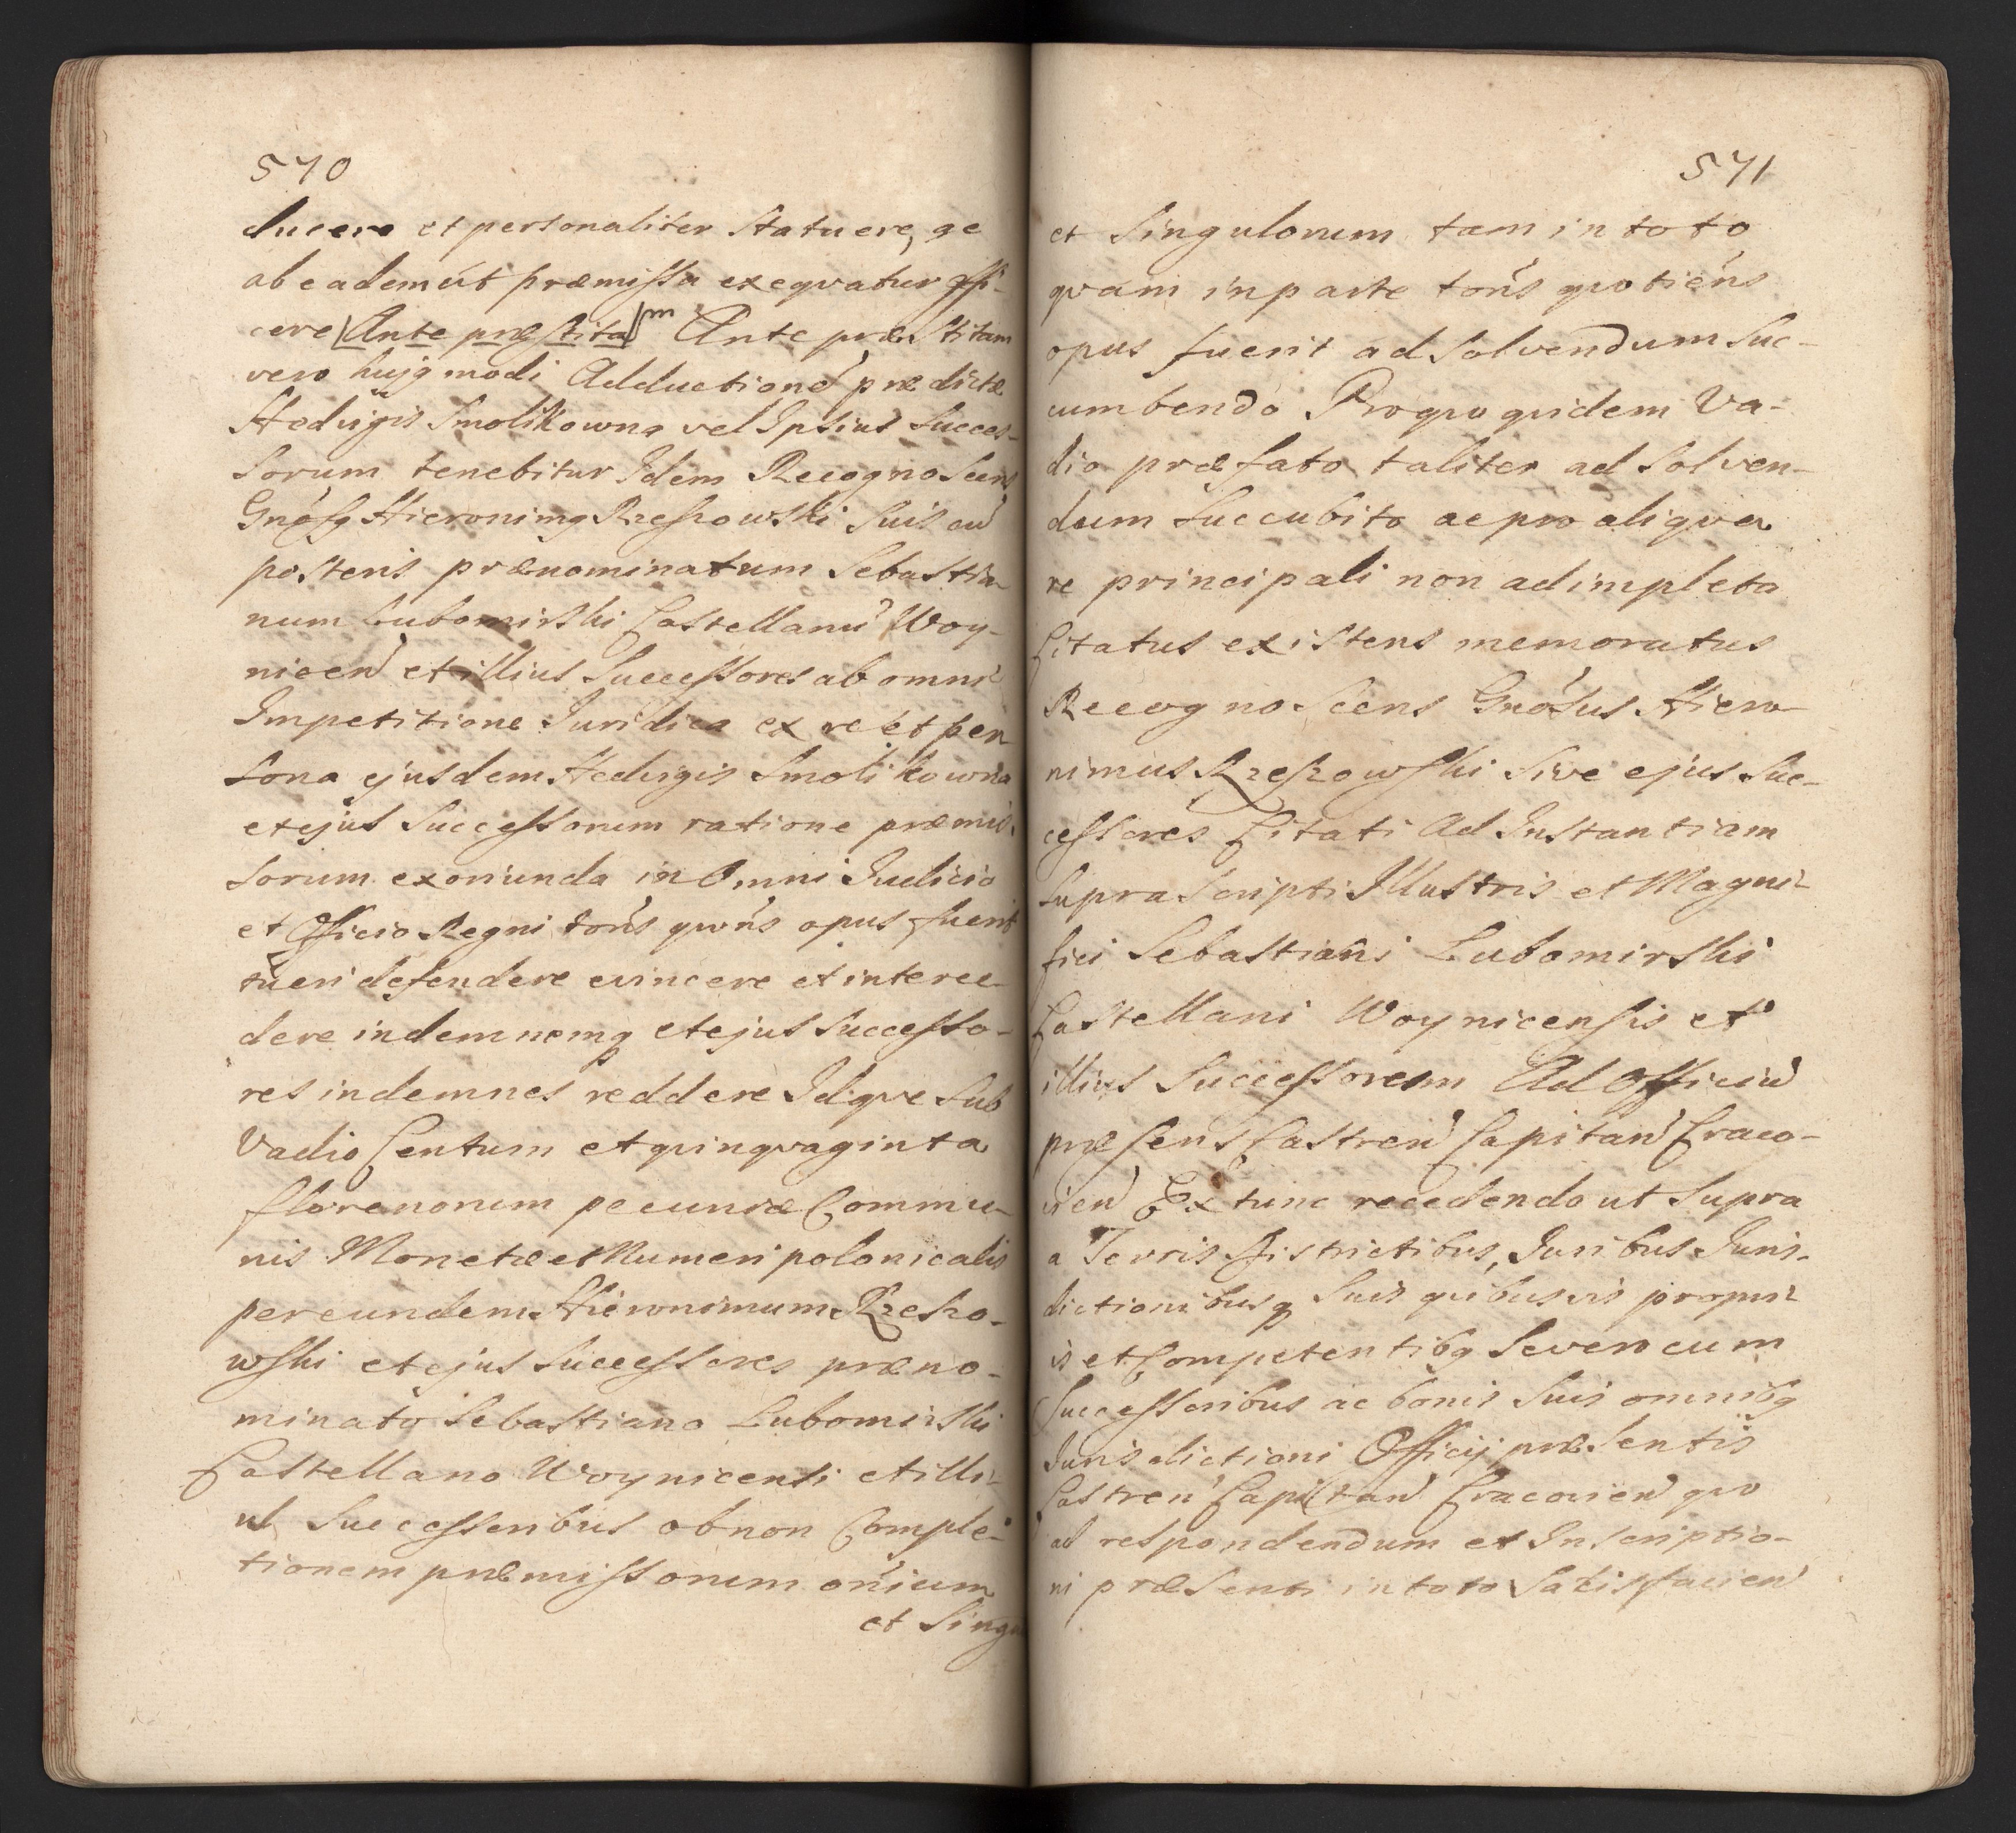 570
ducere et personaliter Statuere, ac
ab eadem út præmissa exeqvatur effi-
cere (Ante præstita)m Ante præstitam
vero hujq modi Adductione prædictæ
Hedvigis Smolikowna vel Ipsius Succes-
sorum tenebitur Idem Recognoscens
Gnosq Hieronimq Rzeszowski suis cu
posteris prænominatum Sebastia-
num Lubomirski Castellanu Woy-
nicen et illius Successores ab omni
Impetitione Juridica ex re et per
sona ejusdem Hedvigis Smolikowna
et ejus Successorum ratione præmis-
sorum exoriunda in Omni Judicio
et Officio Regni tońs qwońs opus fuerit
tueri defendere evincere et interce-
dere indemnemq et ejus Successo-
res indemnes reddere Idqve sub
Vadio Centum et qvinqvaginta
florenorum pecuniæ Commu-
nis Monetæ et Numeri polonicalis
per eundem Hieronimum Rzeszo-
wski et ejus Successores præno-
minato Sebastiano Lubomirski
Castellano Woynicensi et illi-
us Successoribus ob non Comple-
tionem præmissorum ońium
et Singu
571
et Singulorum tam in toto
qvam in parte tońs qvotieńs
opus fuerit ad solvendum Suc-
cumbendo Pro qvo qvidem Va-
dio præfato taliter ad solven-
dum Succubito ac pro aliqva
re principali non adimpleta
Citatus existens memoratus
Recognoscens Gnósus Hiero-
nimus Rzeszowski sive ejus Suc-
cessores Citati Ad Instantiam
supra Scripti Illustris et Magni-
fici Sebastiani Lubomirski
Castellani Woynicensis et
illius Successorem Ad Officiu
præsens Castren Capitan Craco-
vien Ex tunc recedendo ut supra
a Terris Districtibus, Juribus Juris-
dictionibusq suis qvibusvis propri-
is et Competentibq Severo cum
Successoribus ac bonis suis omnibq
Jurisdictioni Officij præsentis
Castren Capitan Cracovien qvo
ad respondendum et Inscriptio-
ni præsenti in toto Satisfacien